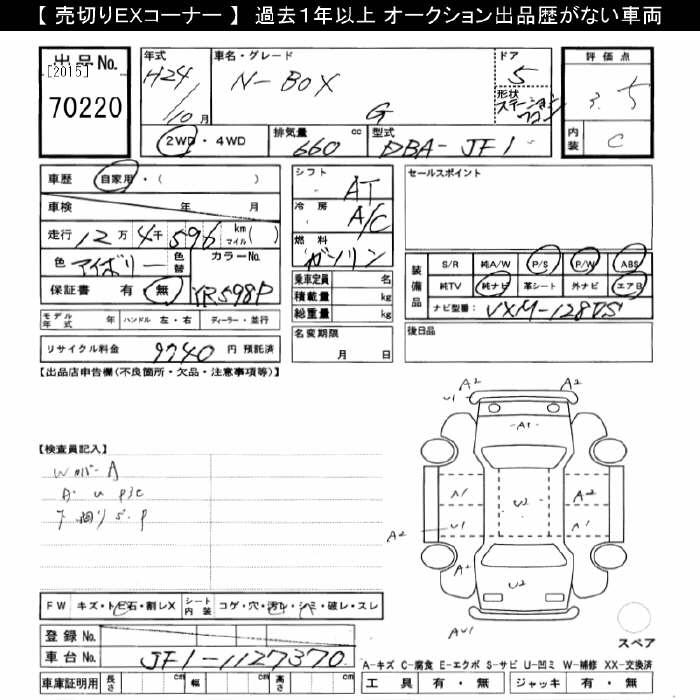 【 売切りEXコーナー 】 過去１年以上 オークション出品歴がない車両
出品No.
[2015]
70220
年式
H24/10月
車名・グレード
N-BOX
G
ドア
5
形状
ステーションワゴン
評価点
3.5
内装
C
2WD・4WD
排気量
660 cc
型式
DBA-JF1
車歴 自家用・( )
車検 年 月
走行 12万4千596 km( ) マイル
色 アイボリー 色替 カラーNo.
保証書 有 無 YR598P
モデル年式 年 ハンドル 左・右 ディーラー・並行
リサイクル料金 9740 円 預託済
シフト AT
冷房 A/C
燃料 ガソリン
乗車定員 名
積載量 kg
総重量 kg
名変期限
月 日
セールスポイント
装備品
S/R 純A/W P/S P/W ABS
純TV 純ナビ 革シート 外ナビ エアB
ナビ型番 VXM-128VS
後日品
【出品店申告欄(不良箇所・欠品・注意事項等)】
【検査員記入】
WカバーA
A・U P3C
下廻りS・P
FW キズ・トビ石・割レX
シート内装 コゲ・穴・汚レ・シミ・破レ・スレ
登録No.
車台No. JF1-1127370
車庫証明用 長さ cm 幅 cm 高さ cm
A2
U1
A2
A1
A1
W2
A2
A2
U1
A1
A2
U2
AU1
スペア
A-キズ C-腐食 E-エクボ S-サビ U-凹ミ W-補修 XX-交換済
工具 有・無 ジャッキ 有・無